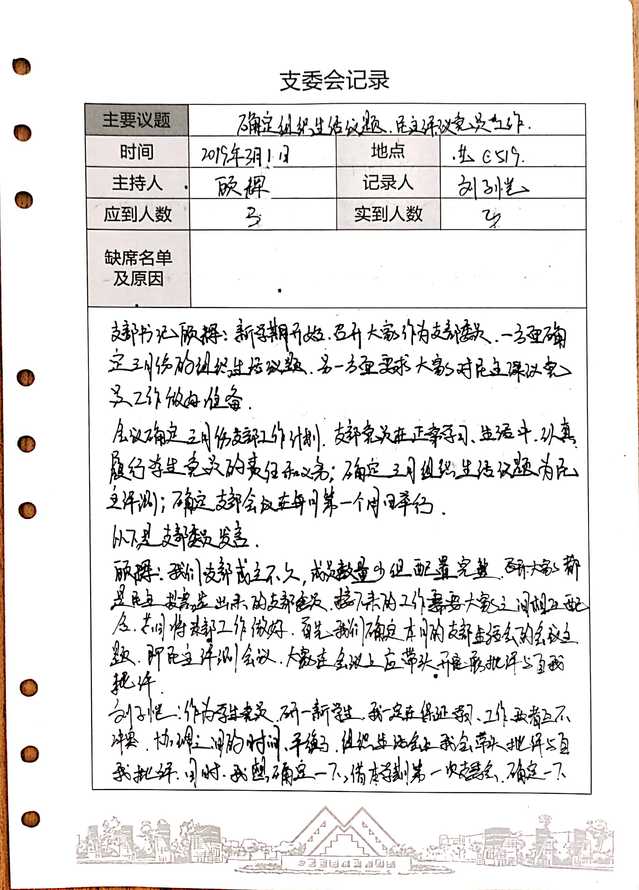 支委会记录
主要议题 确定组织生活议题、民主评议党员工作.
时间 2019年3月1日 地点 C519.
主持人 记录人
应到人数 3 实到人数 3
缺席名单
及原因
支部书记：新学期开始，召开大家作为支部委员，一方面确
定三月份的组织生活议题，另一方面要求大家对民主评议党
员工作做好准备.
会议确定三月份支部工作计划，支部党员在正常学习、生活中，认真
履行学生党员的责任和义务；确定三月组织生活议题为民
主评测；确定支部会议在每月第一个周日举行.
以下是支部委员发言.
我们支部成立不久，成员数量少但配置完整，大家都
是民主出来的支部委员，接下来的工作需要大家之间相互配
合，共同将支部工作做好，首先我们确定本月的支部生活会的会议主
题，即民主评测会议，大家在会议上应带头开展批评与自我
批评.
作为学生党员，研一新学生，我一定在保证学习、工作两者互不
冲突，协调之间的时间，平衡，组织生活会上我会带头批评与自
我批评，同时，我想确定一下，借本学期第一次支委会，确定一下